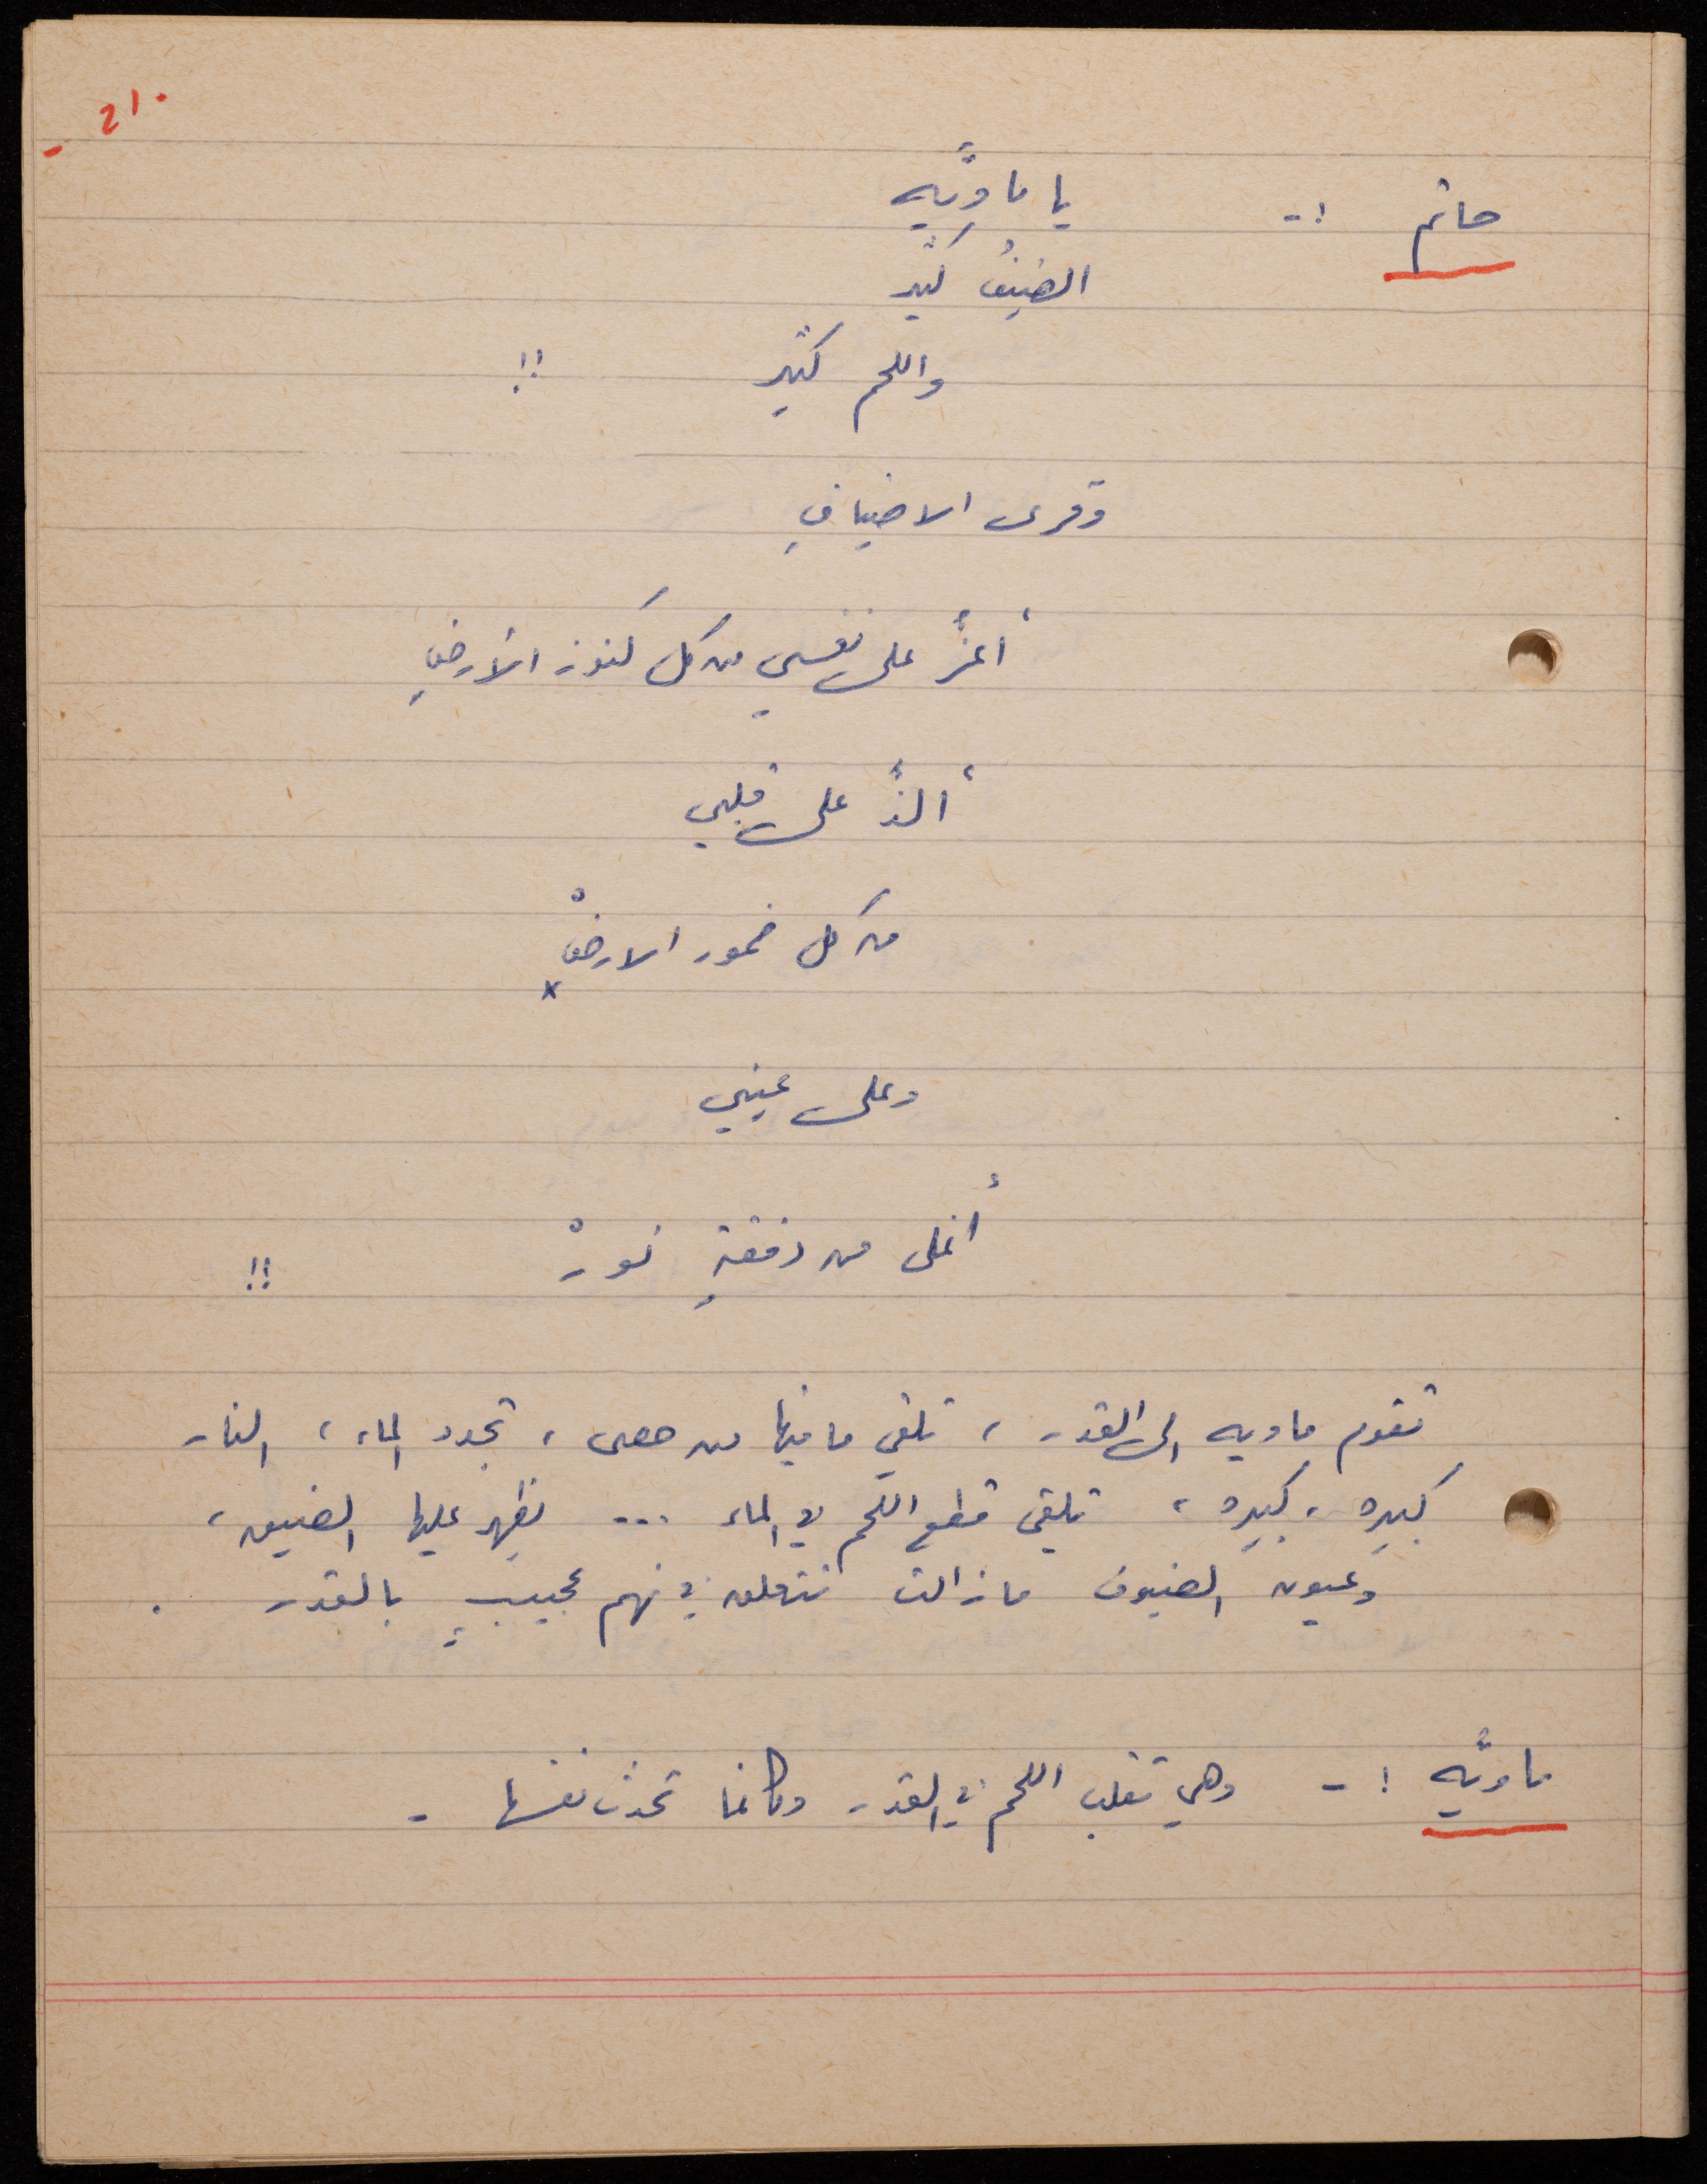 210 -
حاتم :- يا ماويَّه
الضيفُ كثير
واللحم كثير !!
وقرى الاضيافِ
أعزُّ على نفسي من كل كنوز الأرضِ
ألذُّ على قلبي
من كل خمور الارضْ x
وعلى عيني
أغلى من دفقةِ نورْ !!
تقوم ماويه الى القدر ، تلقي ما فيها من حصى ، تجدد الماء ، النار
كبيره ، كبيره ، تلقي قطع اللحم في الماء ... يظهر عليها الضيق ،
وعيون الضيوف مازالت تتعلق في نهم عجيبٍ بالقدر .
ماويَّه :- وهي تقلب اللحم في القدر وكانما تحدث نفسها -